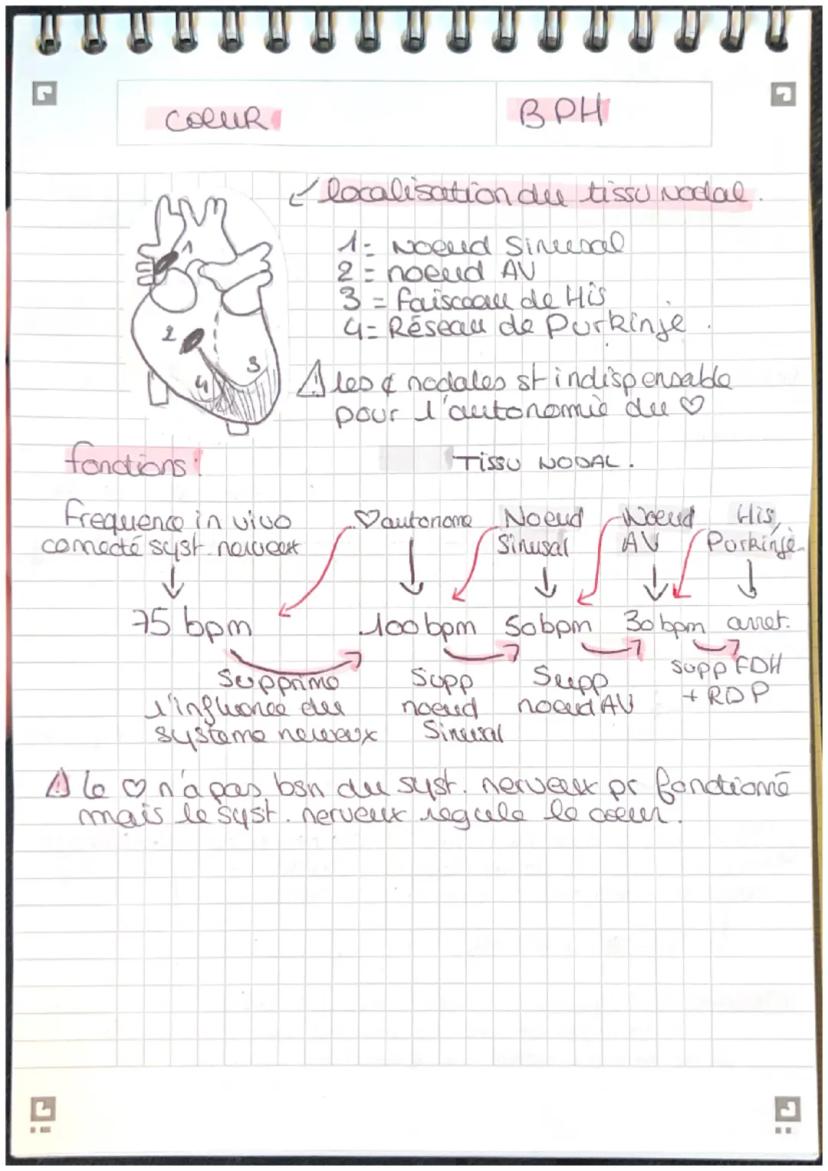 COEUR
BPH
localisation du tissu nodal.
1 = Noeud Sinusal
2 = noeud AV
3 = faisceau de His
4 = Réseau de Purkinje.
1
2
3
4
⚠ les ¢ nodales st indispensable
pour l'autonomie du ♡
fonctions:
TISSU NODAL.
Frequence in vivo
connecté syst. nerveux
♡ autonome
Noeud
Sinusal
Noeud
AV
His,
Purkinje
75 bpm 100 bpm 50 bpm 30 bpm arret.
Supprime
l'influence du
système nerveux
Supp
noeud
Sinusal
Supp
noeud AV
supp FDH
+ RDP
⚠ le ♡ n'a pas bsn du syst. nerveux pr fonctionné
mais le syst. nerveux regule le coeur.